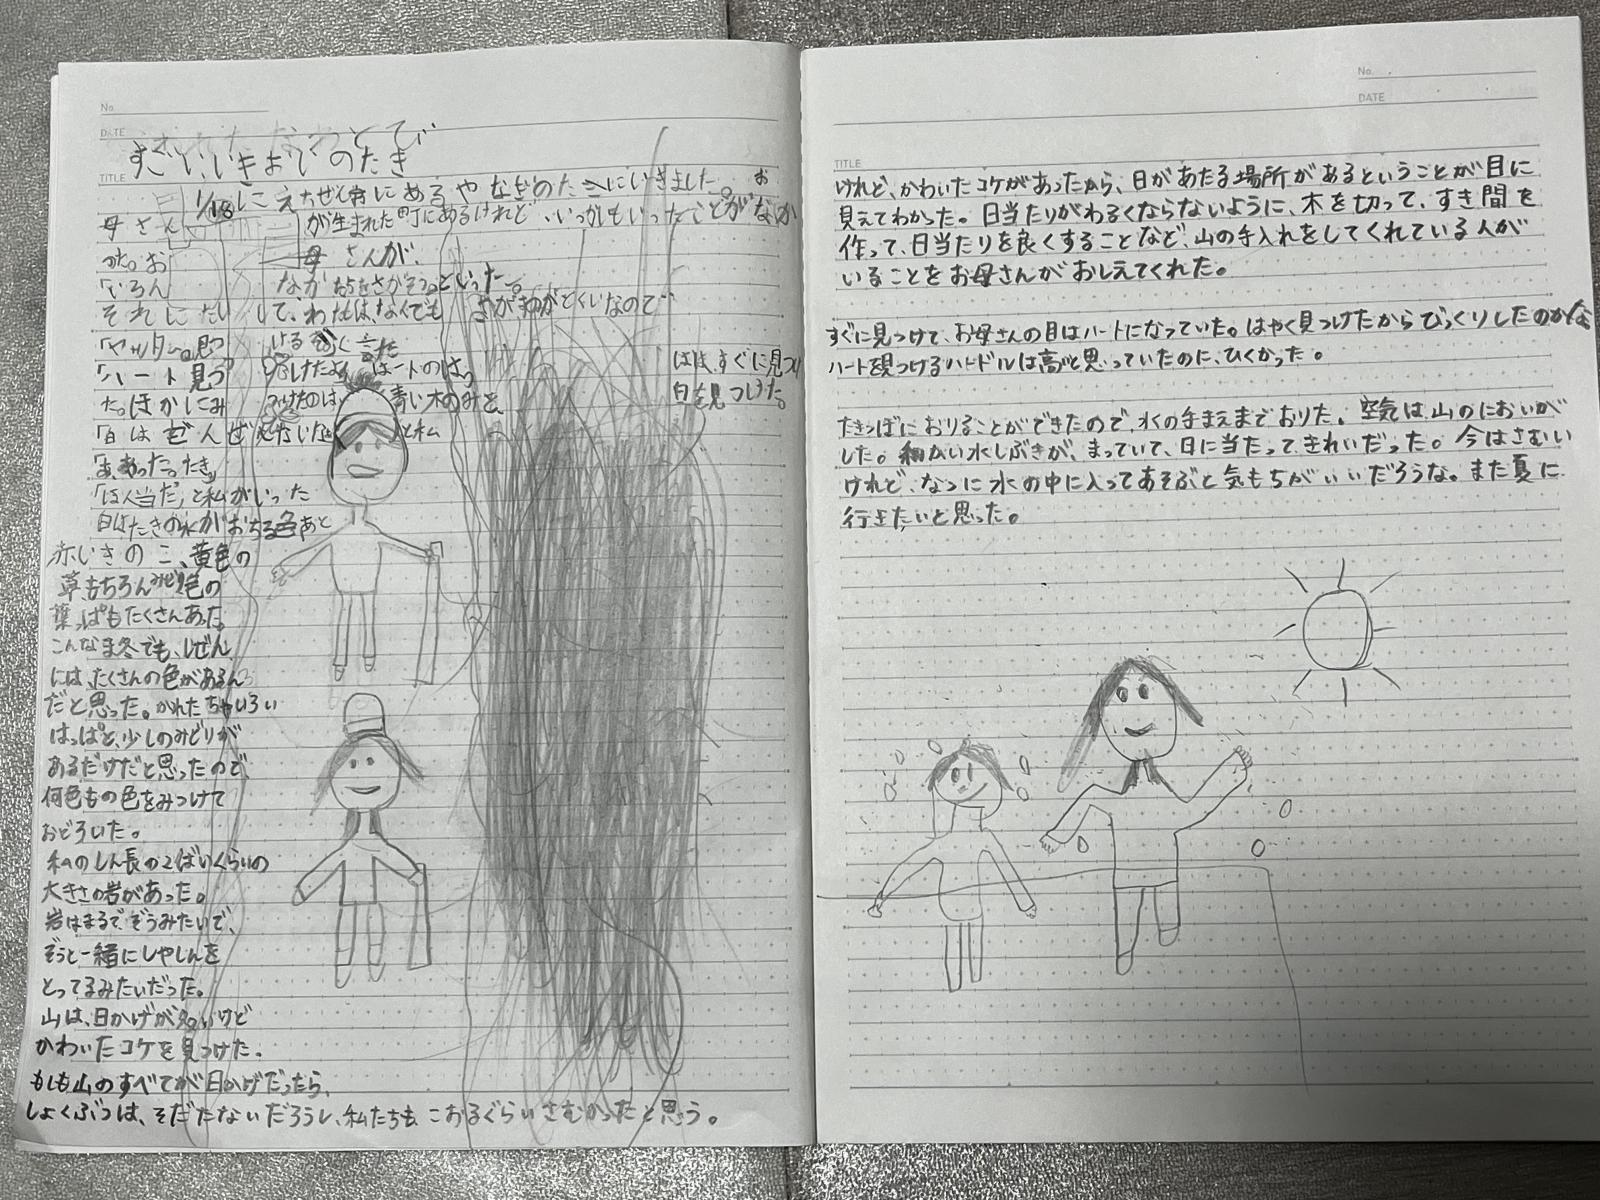 No.
DATE
すごい、いきおいのたき
TITLE
1/18にえちぜん市にあるやなぎのたきにいきました。お
母さんが生まれた町にあるけれど、いつかもいったことがなか
った。お母さんが、
「いろんなかたちをさがそう。といった。
それにたいして、わたしは、なんでもさがすのがとくいなので
「ヤッター。思
「ハート見つけたよ ハートのはっ
ほぼ、すぐに見つ
た。ほかにみつけたのは 青い木のみと、
白を見つけた。
「白はぜんぜん と私
「あ、あった。たき」
「ほん当だ」と私がいった
白はたきの水がおちる色 あと
赤いきのこ、黄色の
草もちろんみどり色の
葉っぱもたくさんあった。
こんなま冬でも、しぜん
には、たくさんの色があるん
だと思った。かれたちゃいろい
はっぱと、少しのみどりが
あるだけだと思ったので、
何色もの色をみつけて
おどろいた。
私のしん長の2ばいくらいの
大きさの岩があった。
岩はまるで、ぞうみたいで、
ぞうと一緒にしゃしんを
とってるみたいだった。
山は、日かげが多いけど
かわいたコケを見つけた。
もしも山のすべてが日かげだったら、
しょくぶつは、そだたないだろうし、私たちも こおるぐらいさむかったと思う。
No.
DATE
TITLE
けれど、かわいたコケがあったから、日があたる場所があるということが目に
見えてわかった。日当たりがわるくならないように、木を切って、すき間を
作って、日当たりを良くすることなど、山の手入れをしてくれている人が
いることをお母さんがおしえてくれた。
すぐに見つけて、お母さんの目はハートになっていた。はやく見つけたからびっくりしたのかな
ハートを見つけるハードルは高いと思っていたのに、ひくかった。
たきつぼにおりることができたので、水の手まえまでおりた。空気は山のにおいが
した。細かい水しぶきが、まっていて、日に当たってきれいだった。今はさむい
けれど、なつに水の中に入ってあそぶと気もちがいいだろうな。また夏に
行きたいと思った。